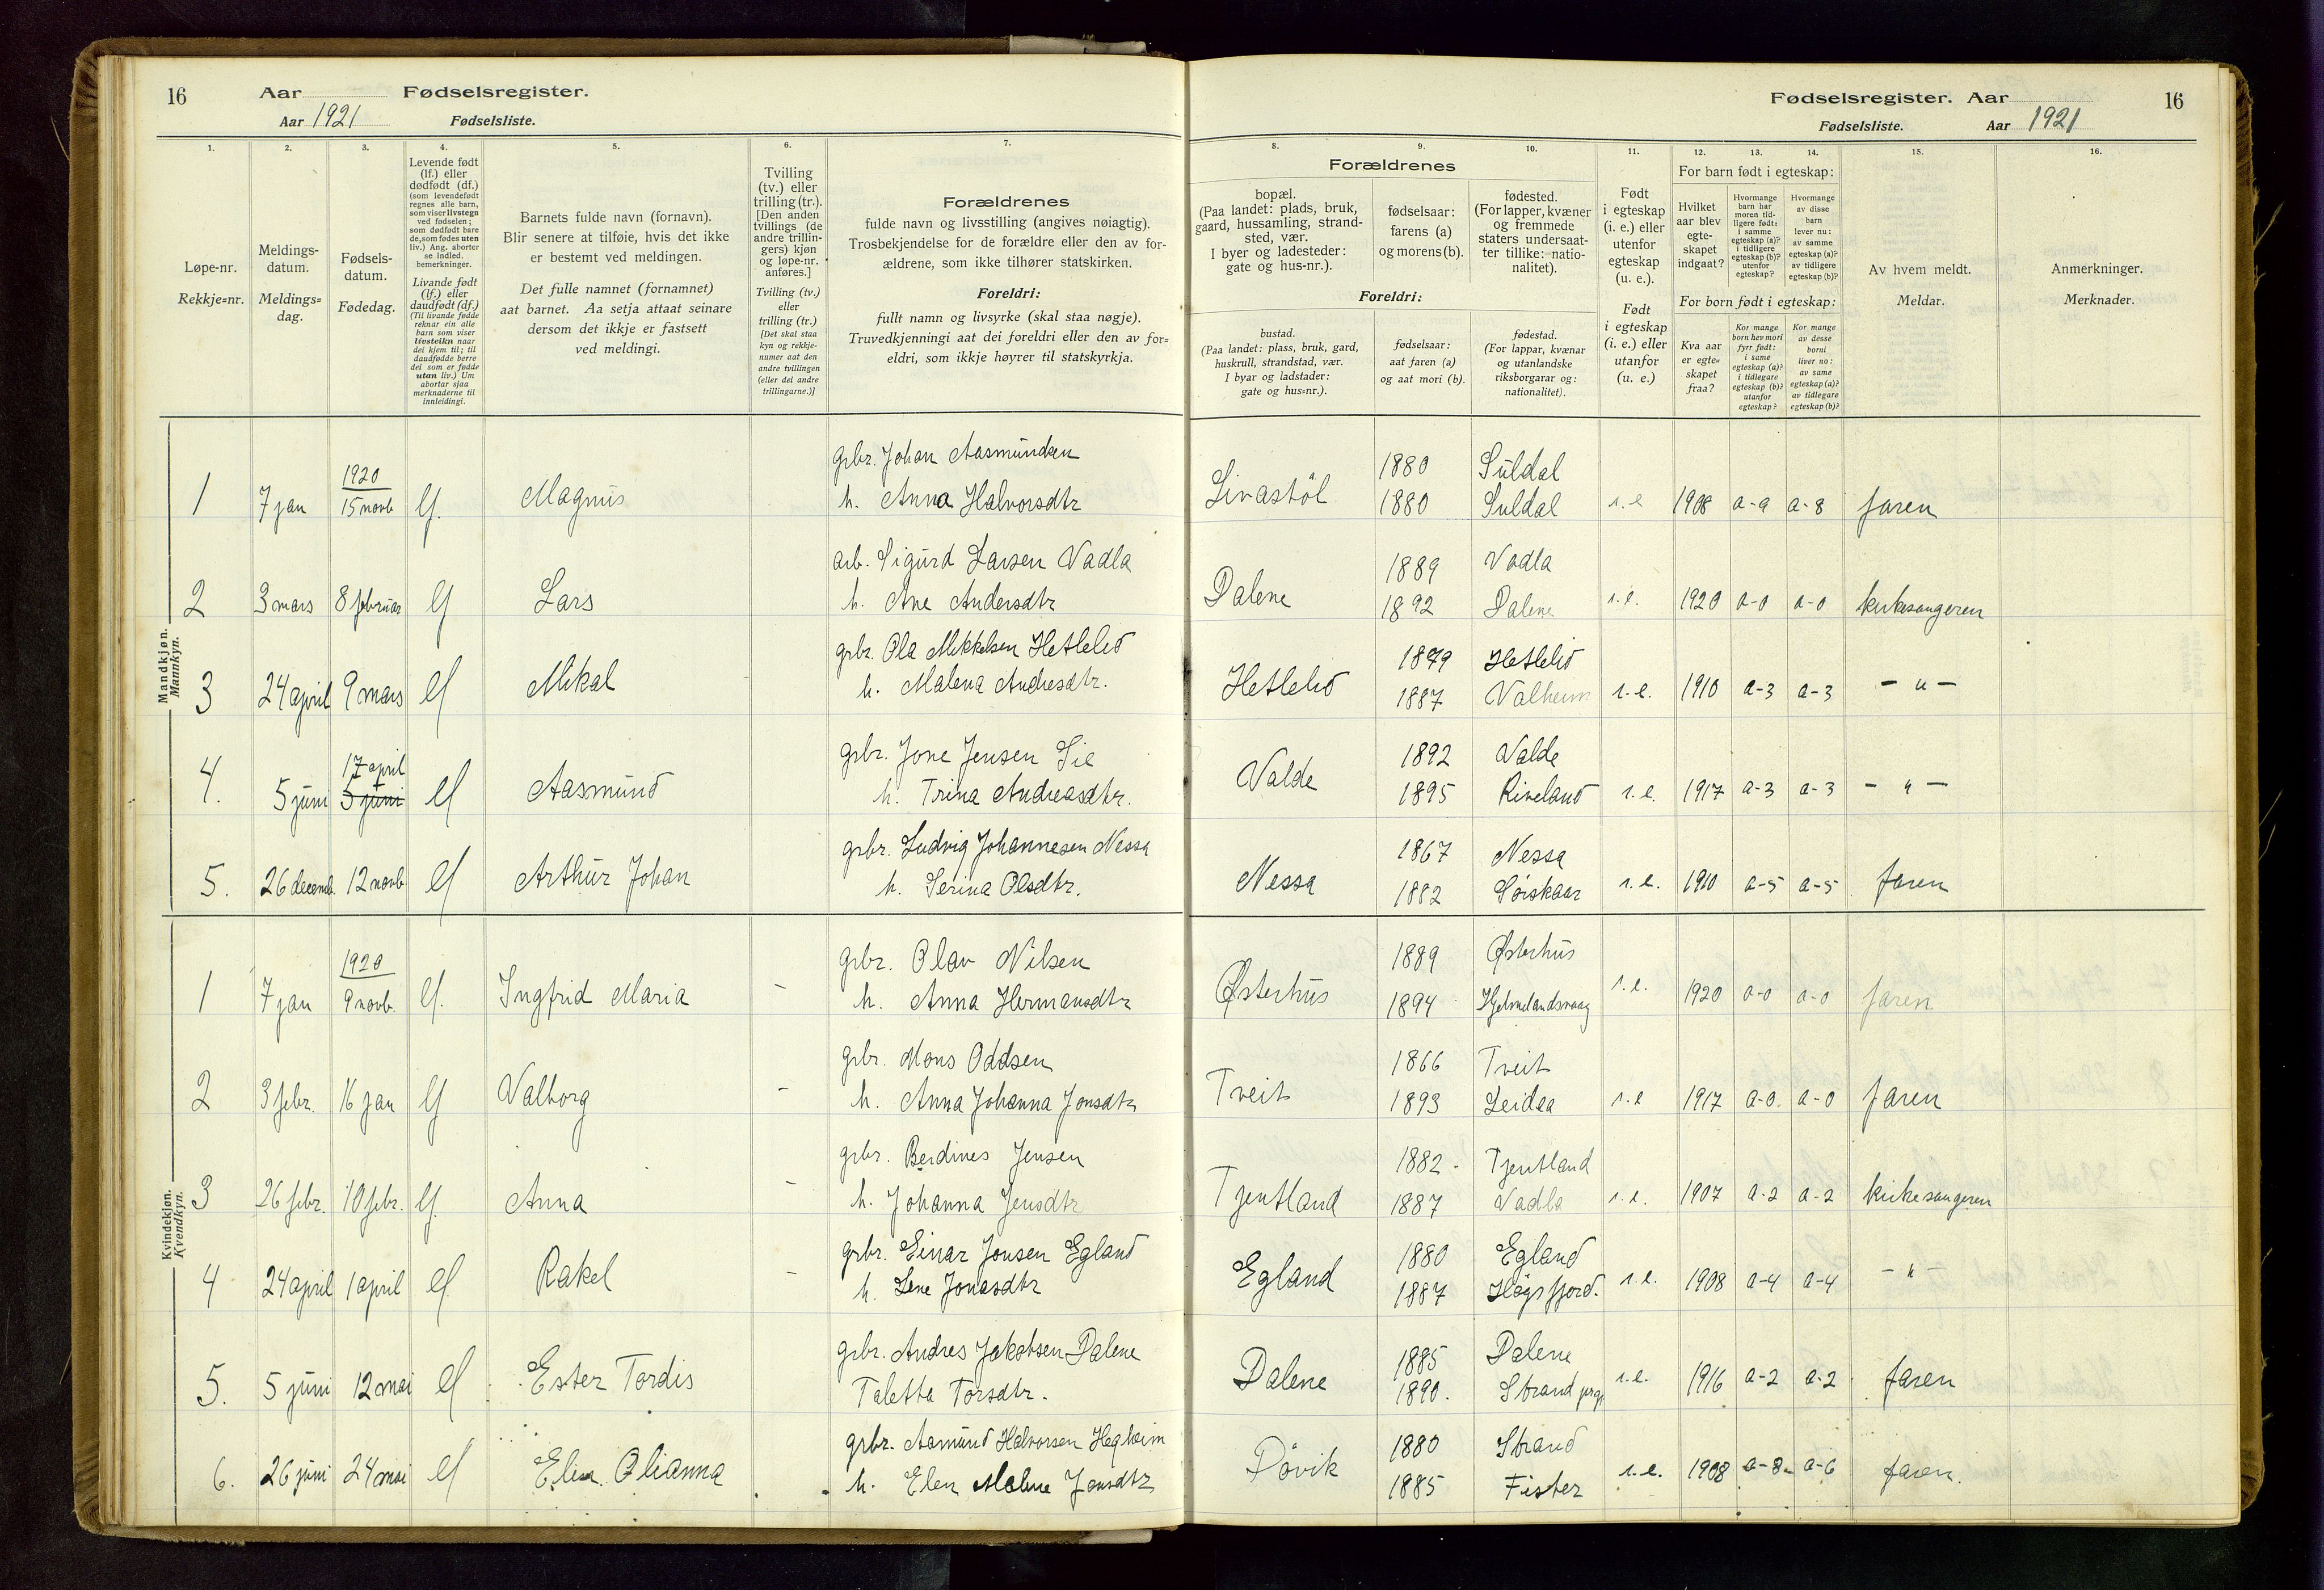 16 Aar Fødselsregister.
Aar 1921 Fødselsliste.
1. 2. 3. 4. 5. 6. 7.
Løpe-nr.
Rekkje=nr.
Meldings-
datum.
Meldings=
dag.
Fødsels-
datum.
Fødedag.
Levende født
(lf.) eller
dødfødt (df.)
(som levendefødt
regnes alle barn,
som viser livstegn
ved fødselen;
som dødfødt bare
de, som fødes uten
liv.) Ang. aborter
se indled.
bemerkninger.
Livande født
(lf.) eller
daudfødt (df.)
(Til livande fødde
reknar ein alle
barn som viser
livsteikn naar
dei kjem til; til
daudfødde berre
dei som er fødde
utan liv.) Um
abortar sjaa
merknaderne til
innleidingi.
Barnets fulde navn (fornavn).
Blir senere at tilføie, hvis det ikke
er bestemt ved meldingen.
Det fulle namnet (fornamnet)
aat barnet. Aa setja attaat seinare
dersom det ikkje er fastsett
ved meldingi.
Tvilling
(tv.) eller
trilling (tr.).
[Den anden
tvillings (de
andre trillin-
gers) kjøn
og løpe-nr.
anføres.]
Tvilling (tv.)
eller
trilling (tr.)
[Det skal staa
kyn og rekkje-
numer aat den
andre tvillingen
(eller dei andre
trillingarne.)]
Forældrenes
fulde navn og livsstilling (angives nøiagtig).
Trosbekjendelse for de forældre eller den av for-
ældrene, som ikke tilhører statskirken.
Foreldri:
fullt namn og livsyrke (skal staa nøgje).
Truvedkjenningi aat dei foreldri eller den av for=
eldri, som ikkje høyrer til statskyrkja.
Mandkjøn.
Mannkyn.
1 7 jan 1920 15 novb lf. Magnus
grbr. Johan Aasmundsen
h. Anna Halvorsdtr
2 3 mars 8 februar lf Lars
arb. Sigurd Larsen Vadla
h. Ane Andersdtr
3 24 april 9 mars lf Mikal
grbr. Ola Mikkelsen Hetlelid
h. Malena Andresdtr.
4. 5 juni 17 april 5 juni lf Aasmund
grbr. Jone Jensen Lie
h. Trina Andreasdtr.
5. 26 decemb. 12 novb lf Arthur Johan
grbr. Ludvig Johannesen Nessa
h. Serina Olsdtr.
Kvindekjøn.
Kvendkyn.
1 7 jan 1920 9 novb. lf. Ingfrid Maria -
grbr. Olav Nilsen
h. Anna Hermansdtr
2 3 febr. 16 jan lf Valborg -
grbr. Mons Oddsen
h. Anna Johanna Jonsdtr
3 26 febr. 10 febr. lf. Anna -
grbr. Berdines Jensen
h. Johanna Jensdtr
4 24 april 1 april lf. Rakel -
grbr. Einar Jonsen Egland
h. Lene Jonasdtr
5. 5 juni 12 mai lf Ester Tordis
grbr. Andres Jakobsen Dalene
Taletta Torsdtr.
6. 26 juni 24 mai lf Elin Olianna
grbr. Aamund Halvorsen Hegheim
h. Elen Malene Jonsdtr
Fødselsregister. Aar 16
Fødselsliste. Aar 1921
8. 9. 10. 11. 12. 13. 14. 15. 16.
Forældrenes
bopæl.
(Paa landet: plads, bruk,
gaard, hussamling, strand-
sted, vær.
I byer og ladesteder:
gate og hus-nr.).
fødselsaar:
farens (a)
og morens (b).
fødested.
(For lapper, kvæner
og fremmede
staters undersaat-
ter tillike: natio-
nalitet).
Foreldri:
bustad.
(Paa landet: plass, bruk, gard,
huskrull, strandstad, vær.
I byar og ladstader:
gate og hus=nr.).
fødselsaar:
aat faren (a)
og aat mori (b).
fødestad.
(For lappar, kvænar
og utanlandske
riksborgarar og:
nationalitet).
Født
i egteskap
(i. e.) eller
utenfor
egteskap
(u. e.).
Født
i egteskap
(i. e.) eller
utanfor
(u. e.)
For barn født i egteskap:
Hvilket
aar blev
egte-
skapet
indgaat?
Hvormange
barn har
moren tid-
ligere født:
i samme
egteskap (a)?
i tidligere
egteskap (b)?
utenfor
egteskap?
Hvormange
av disse
barn
lever nu:
av samme
egteskap (a)?
av tidligere
egteskap (b)?
For born født i egteskap:
Kva aar
er egte=
skapet
fraa?
Kor mange
born hev mori
fyrr født:
i same
egteskap (a)?
i tidlegare
egteskap (b)?
utanfor
egteskap?
Kor mange
av desse
borni
liver no:
av same
egteskap (a)?
av tidlegare
egteskap (b)?
Av hvem meldt.
Meldar.
Anmerkninger.
Merknader.
Livastöl 1880 Suldal
1880 Suldal i. e 1908 a-9 a-8 faren
Dalene 1889 Vadla
1892 Dalene i. e. 1920 a-0 a-0 kirkesangeren
Hetlelid 1879 Hetlelid
1887 Valheim i. e. 1910 a-3 a-3 - " -
Valde 1892 Valde
1895 Riveland i. e. 1917 a-3 a-3 - " -
Nessa 1867 Nessa
1882 Sørskaar i. e. 1910 a-5 a-5 faren
Østerhus 1889 Østerhus
1894 Hjelmelandsvaag i. e. 1920 a-0 a-0 faren
Tveit 1866 Tveit
1893 Leidea i. e 1917 a-0. a-0 faren
Tjentland 1882 Tjentland
1887 Vadla i. e. 1907 a-2 a-2 kirkesangeren
Egland 1880 Egland
1887 Høgsfjord. i. e. 1908 a-4 a-4 - " -
Dalene 1885 Dalene
1890. Strand prgj i. e. 1916 a-2 a-2 faren
Døvik 1880 Strand
1885 Fister i. e. 1908 a-8 a-6 faren.